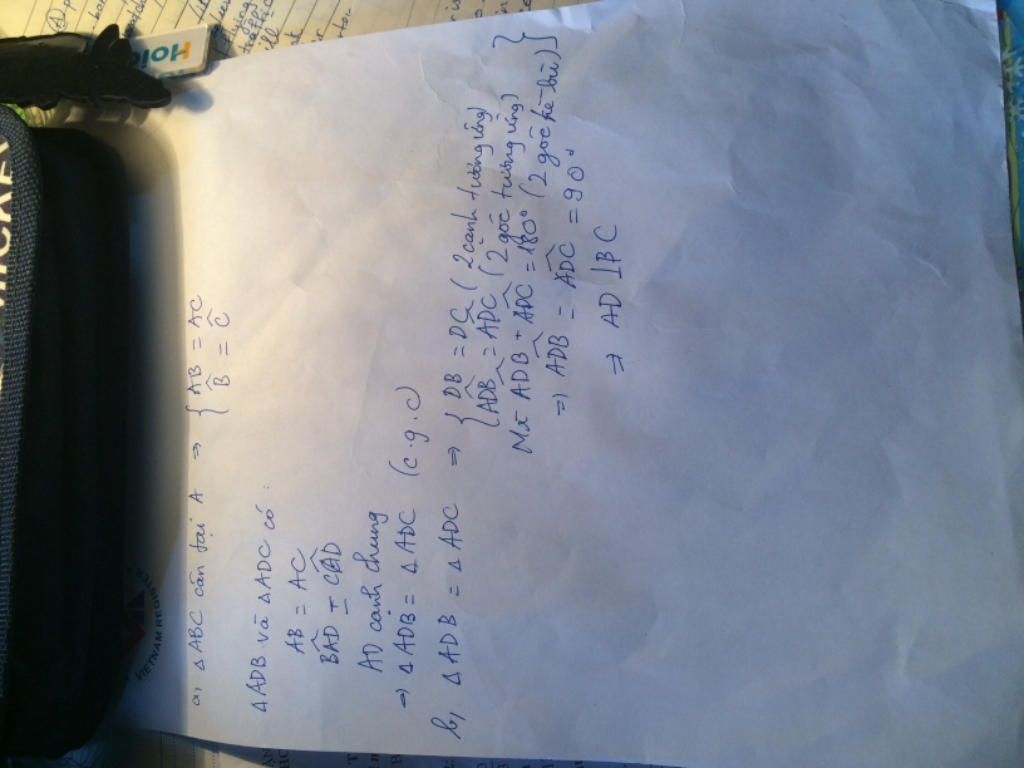 a, △ABC cân tại A ⇒ { AB = AC
B̂ = Ĉ
△ADB và △ADC có :
AB = AC
B̂AD = ĈAD
AD cạnh chung
⇒ △ADB = △ADC (c.g.c)
b, △ADB = △ADC ⇒ { DB = DC (2 cạnh tương ứng)
ÂDB = ÂDC (2 góc tương ứng) }
Mà ADB + ÂDC = 180° (2 góc kề bù)
⇒ ÂDB = ÂDC = 90°
⇒ AD ⊥ BC
VIETNAM REGISTER